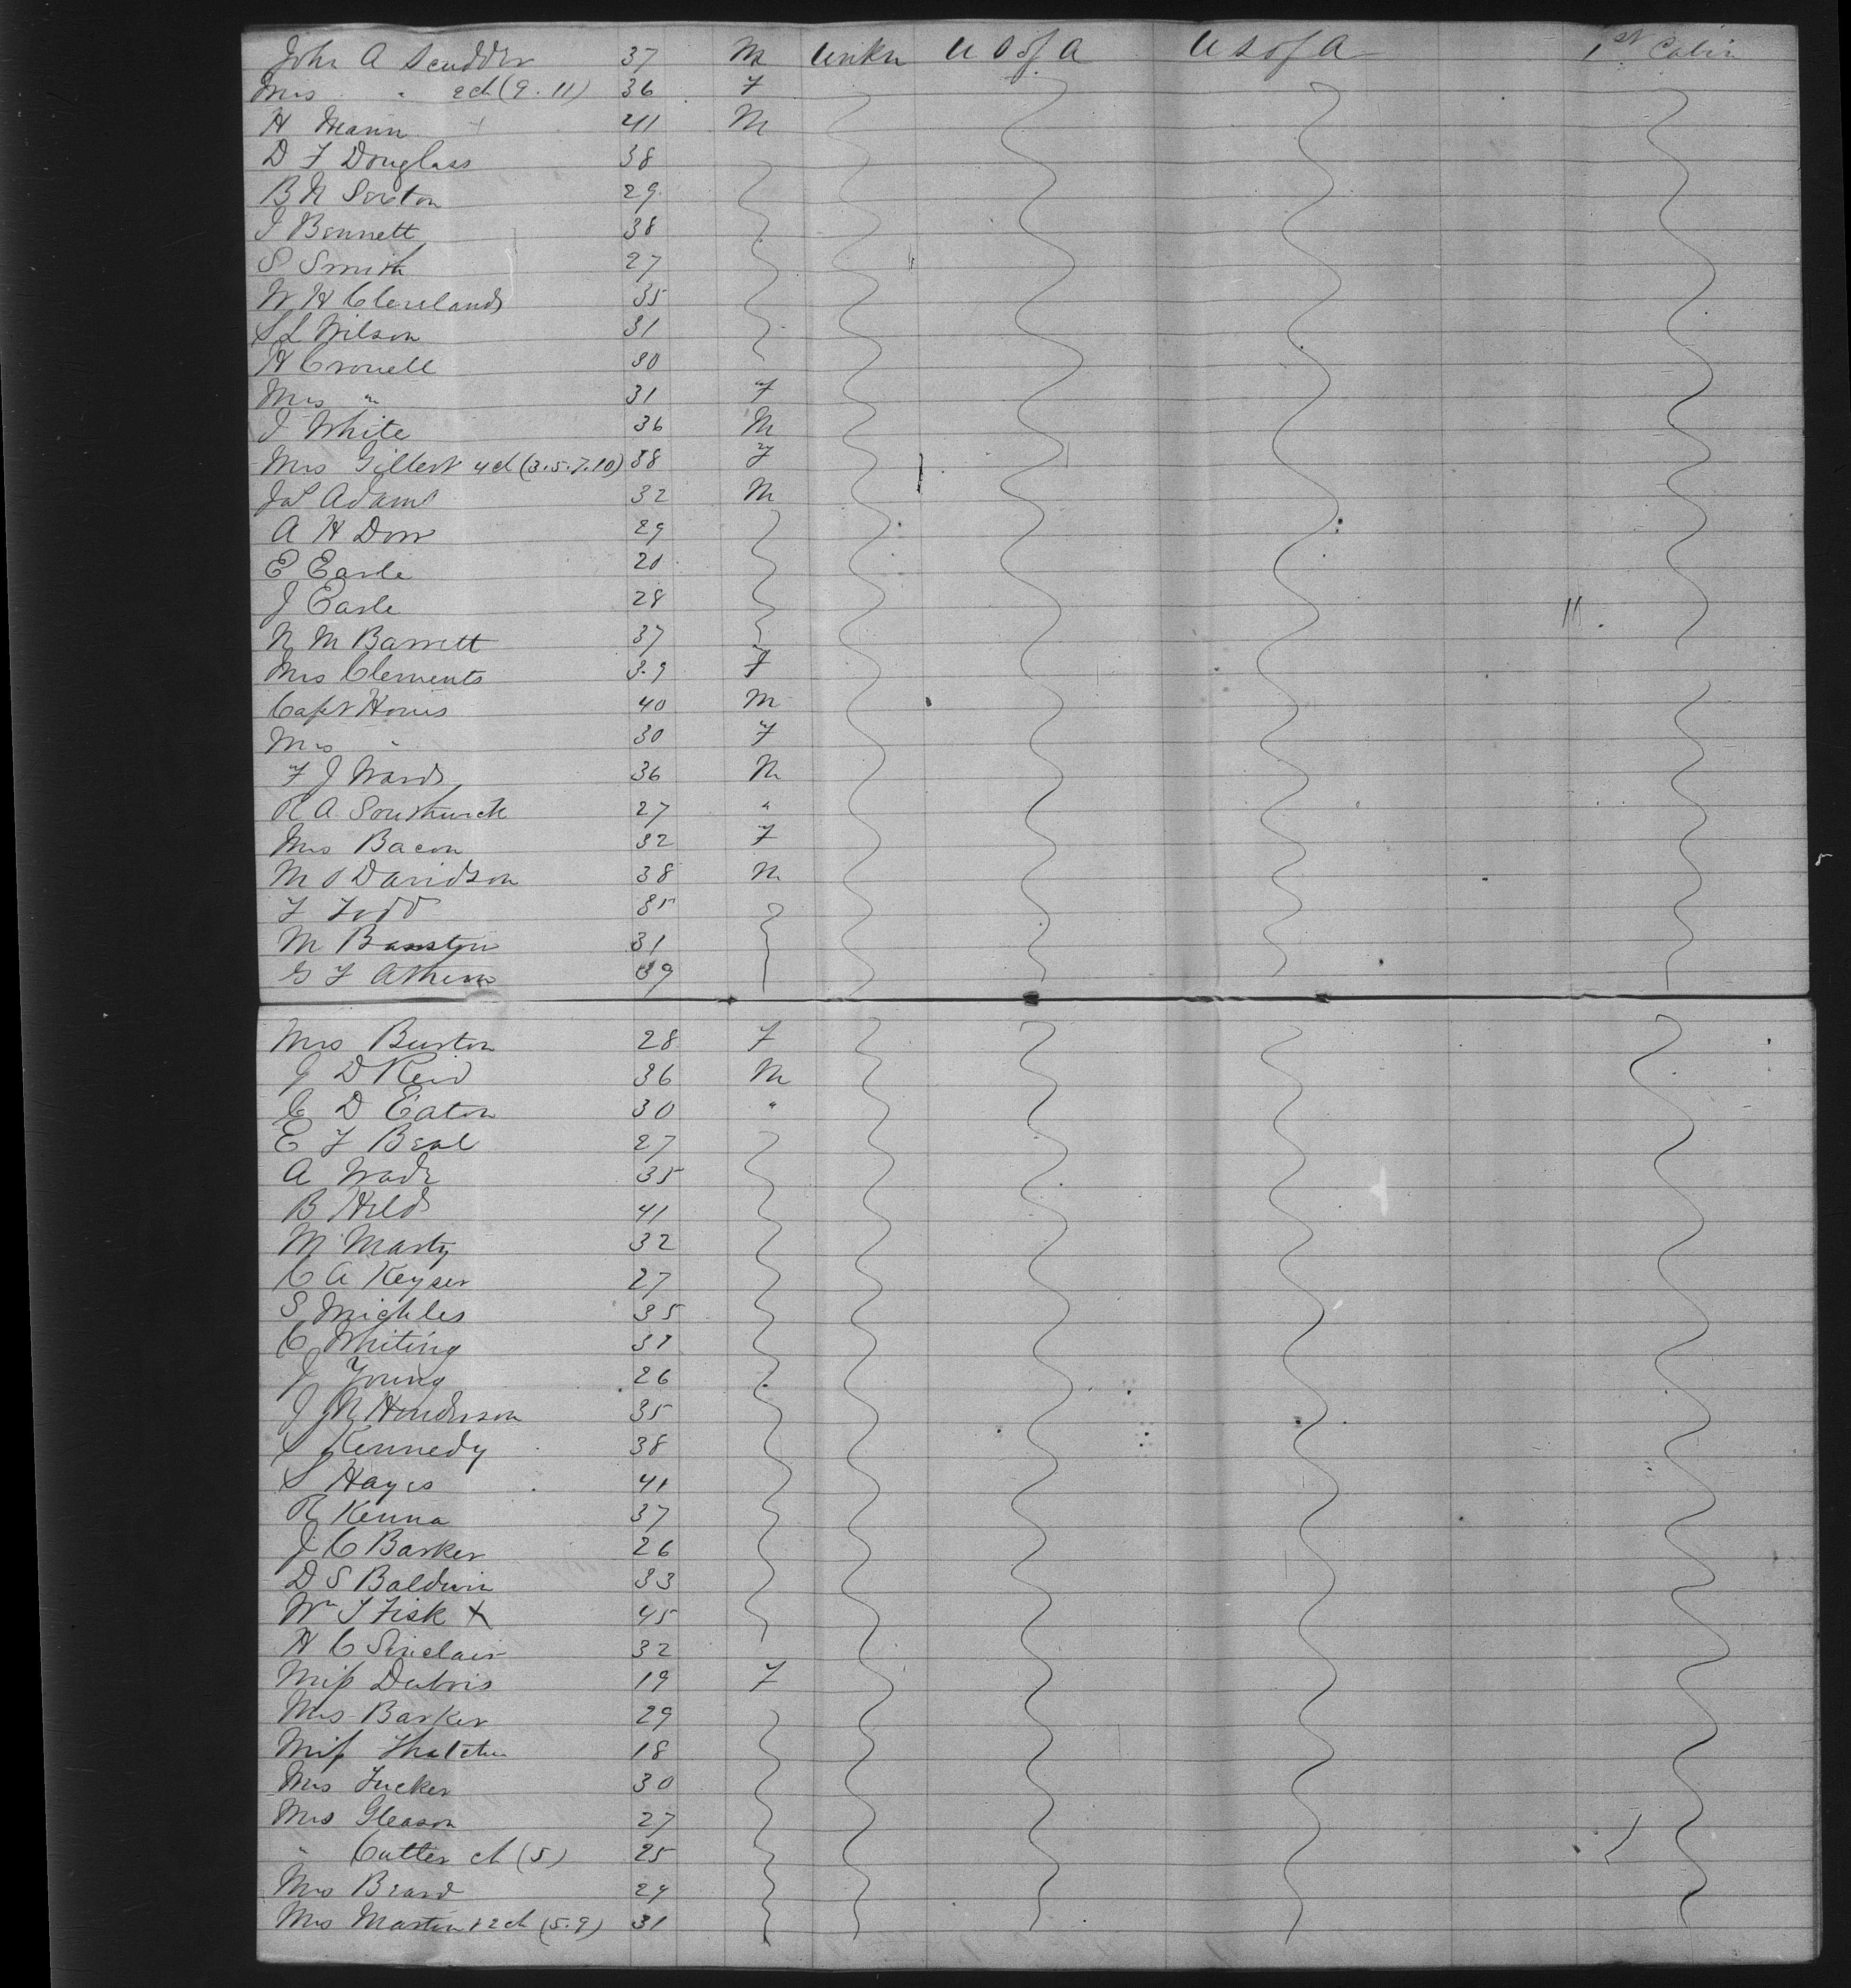 John A Scudder 37 M Unkn U S of A U S of A 1st Cabin
Mrs " 2ch (9.11) 36 F
H Mann 41 M
D F Douglass 38
B N Sexton 29
J Bennett 38
S Smith 27
W H Cleveland 35
S L Wilson 31
H Crowell 30
Mrs " 31 F
J White 36 M
Mrs Gilbert 4ch (3.5.7.10) 38 F
Jas Adams 32 M
A H Dow 29
E Earle 20
J Earle 28
N M Barrett 37
Mrs Clements 39 F
Capt Howes 40 M
Mrs " 30 F
F J Ward 36 M
R A Southwick 27 "
Mrs Bacon 32 F
M O Davidson 38 M
F Todd 35
M 31
G F 39
Mrs Burton 28 F
J D Reid 36 M
C D Eaton 30 "
E F Beal 27
A Wade 35
B Held 41
M Marty 32
C A Keyser 27
S Michles 35
C Whiting 31
J Young 26
J N Henderson 35
S Kennedy 38
S Hayes 41
R Kenna 37
J C Barker 26
D S Baldwin 33
Wm J Fisk X 45
H C Sinclair 32
Miss Dubois 19 F
Mrs Barker 29
Miss Thatcher 18
Mrs Tucker 30
Mrs Gleason 27
" Cutter ch (5) 25
Mrs Beard 29
Mrs Martin & 2ch (5.9) 31